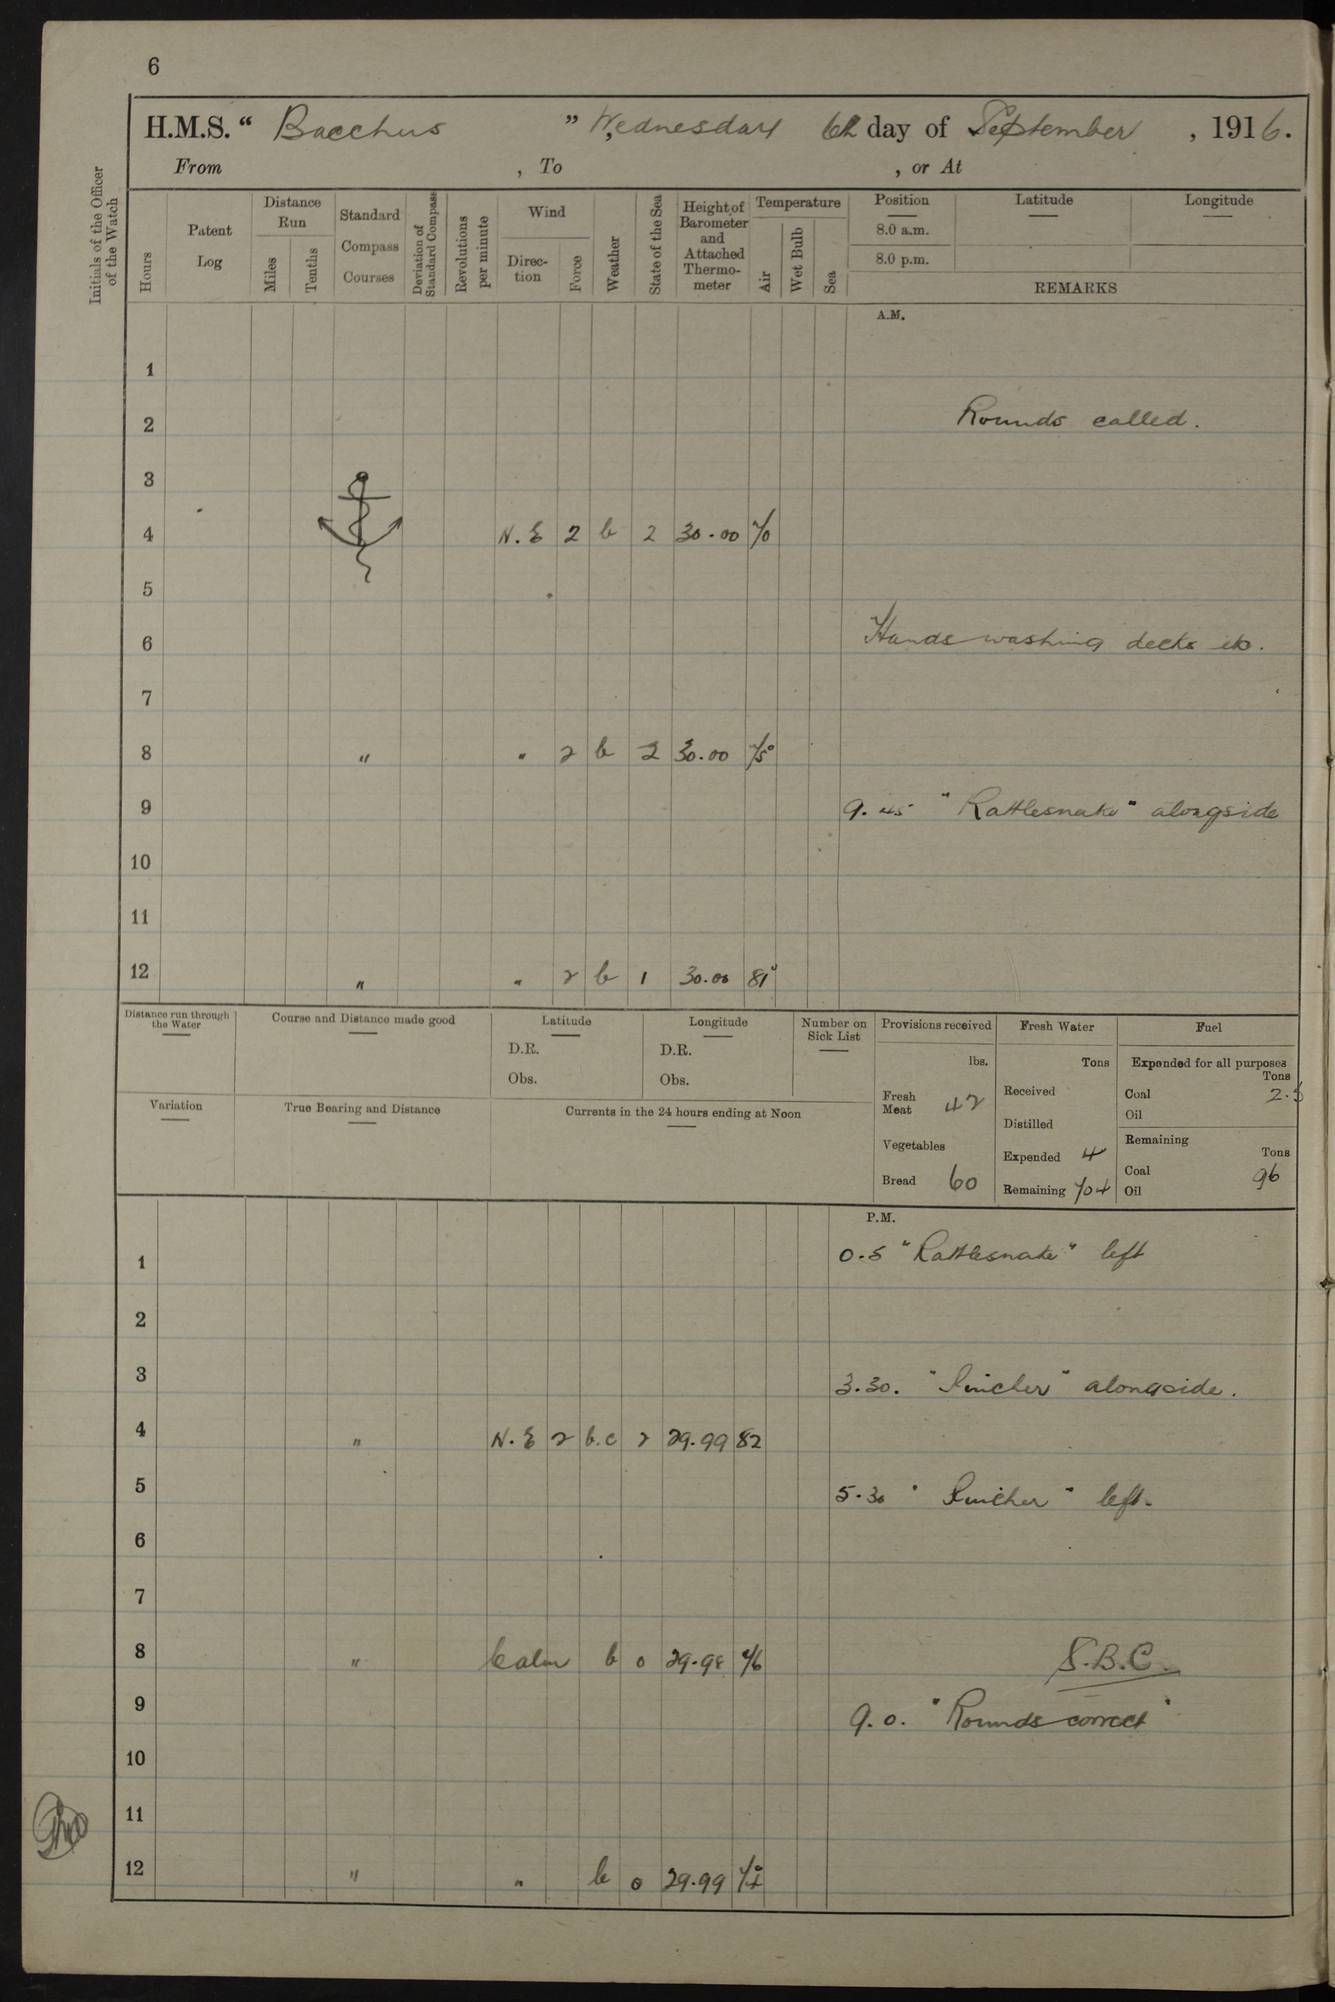 6
H.M.S. “ Bacchus ” Wednesday 6th day of September , 1916.
From , To , or At
Initials of the Officer of the Watch
Hours
Patent Log
Distance Run
Miles
Tenths
Standard Compass Courses
Deviation of Standard Compass
Revolutions per minute
Wind
Direc-tion
Force
Weather
State of the Sea
Height of Barometer and Attached Thermo-meter
Temperature
Air
Wet Bulb
Sea
Position
8.0 a.m.
8.0 p.m.
Latitude
Longitude
REMARKS
A.M.
1
2 Rounds called.
3
4 N.E 2 b 2 30.00 70
5
6 Hands washing decks etc.
7
8 " " 2 b 2 30.00 75°
9 9.45 "Rattlesnake" alongside
10
11
12 " " 2 b 1 30.00 81°
Distance run through the Water
Course and Distance made good
Latitude
D.R.
Obs.
Longitude
D.R.
Obs.
Number on Sick List
Provisions received
lbs.
Fresh Meat 42
Vegetables
Bread 60
Fresh Water
Tons
Received
Distilled
Expended 4
Remaining 704
Fuel
Expended for all purposes
Tons
Coal 2.5
Oil
Remaining
Tons
Coal 96
Oil
Variation
True Bearing and Distance
Currents in the 24 hours ending at Noon
P.M.
1 0.5 "Rattlesnake" left
2
3 3.30. "Pincher" alongside.
4 " N.E 2 b.c 2 29.99 82
5 5.30 "Pincher" left.
6
7
8 " Calm b 0 29.98 76 S.B.C.
9 9.0. "Rounds correct"
10
11
12 " " b 0 29.99